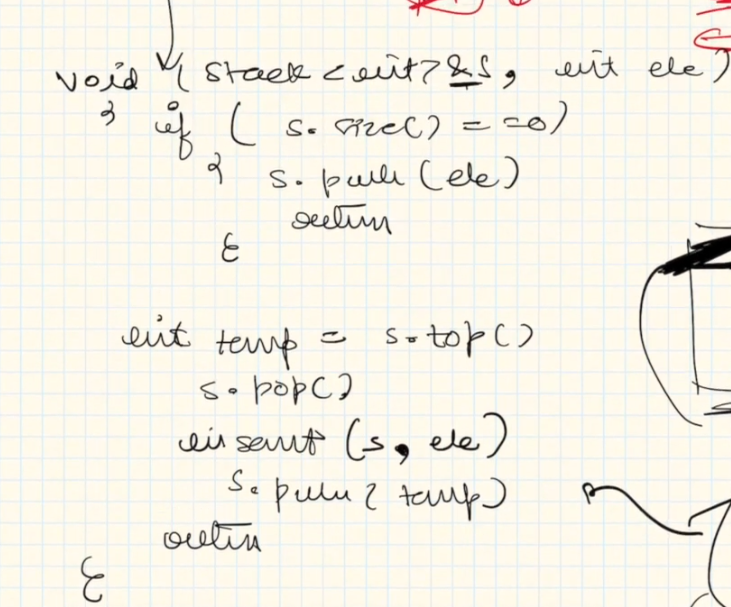 void ( stack <int> &s, int ele )
{ if ( s. size() = = 0)
{ s. push (ele)
return
}
int temp = s. top ()
s. pop()
insert (s, ele)
s. push ( temp)
return
}